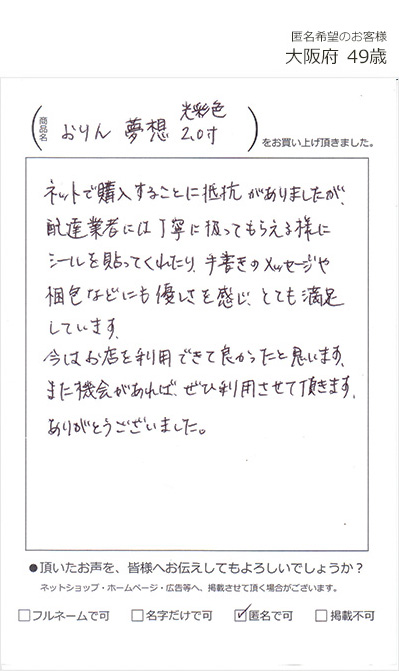 匿名希望のお客様
大阪府 49歳
商品名
光彩色
おりん 夢想 2.0寸
をお買い上げ頂きました。
ネットで購入することに抵抗がありましたが、
配達業者には丁寧に扱ってもらえる様に
シールを貼ってくれたり、手書きのメッセージや
梱包などにも優しさを感じ、とても満足
しています。
今はお店を利用できて良かったと思います。
また機会があれば、ぜひ利用させて頂きます。
ありがとうございました。
●頂いたお声を、皆様へお伝えしてもよろしいでしょうか？
ネットショップ・ホームページ・広告等へ、掲載させて頂く場合がございます。
□フルネームで可 □名字だけで可 ☑匿名で可 □掲載不可